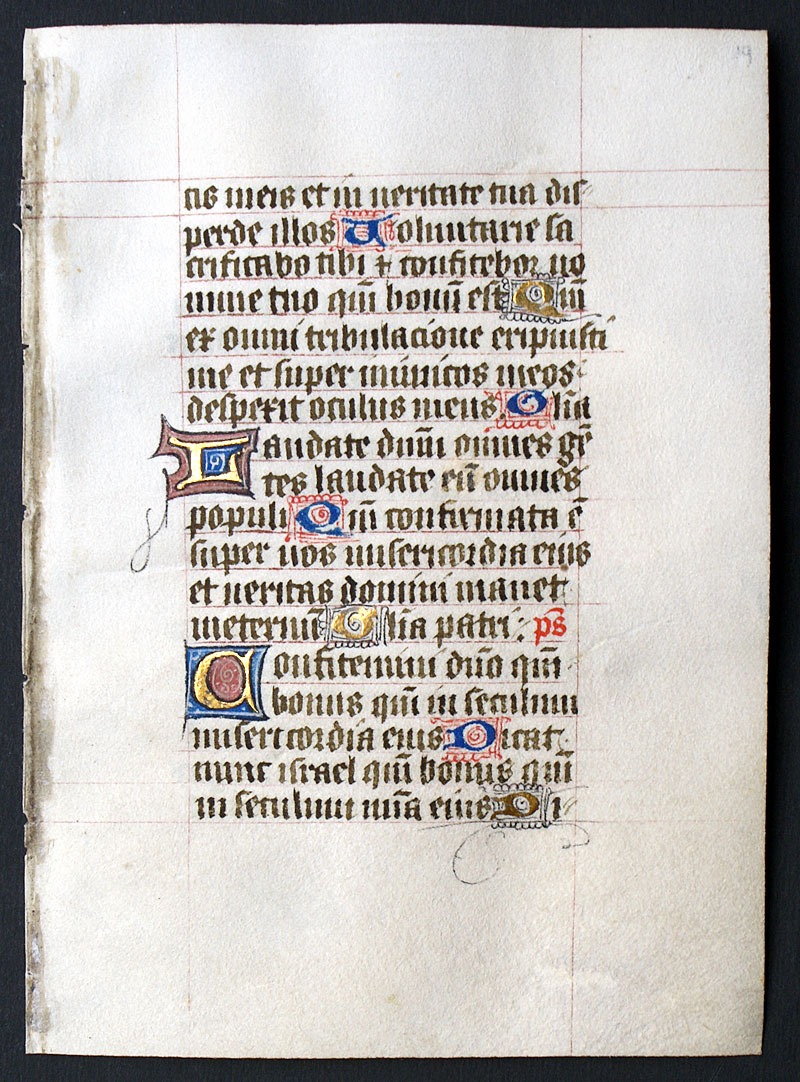 19
cis meis et in ueritate tua dis
perde illos Uoluntarie sa
crificabo tibi ⁊ confitebor no
mine tuo qm̄ bonū est Qm̄
ex omni tribulacione eripuisti
me et super inimicos meos
despexit oculus meus Glīa
Laudate dn̄m omnes gē
tes laudate eū omnes
populi Qm̄ confirmata ē
super nos misericordia eius
et ueritas domini manet
ineternū Glīa patri: ps̄
Confitemini dn̄o qm̄
bonus qm̄ in seculum
misericordia eius Dicat
nunc israel qm̄ bonus qm̄
in seculum mīa eius Di